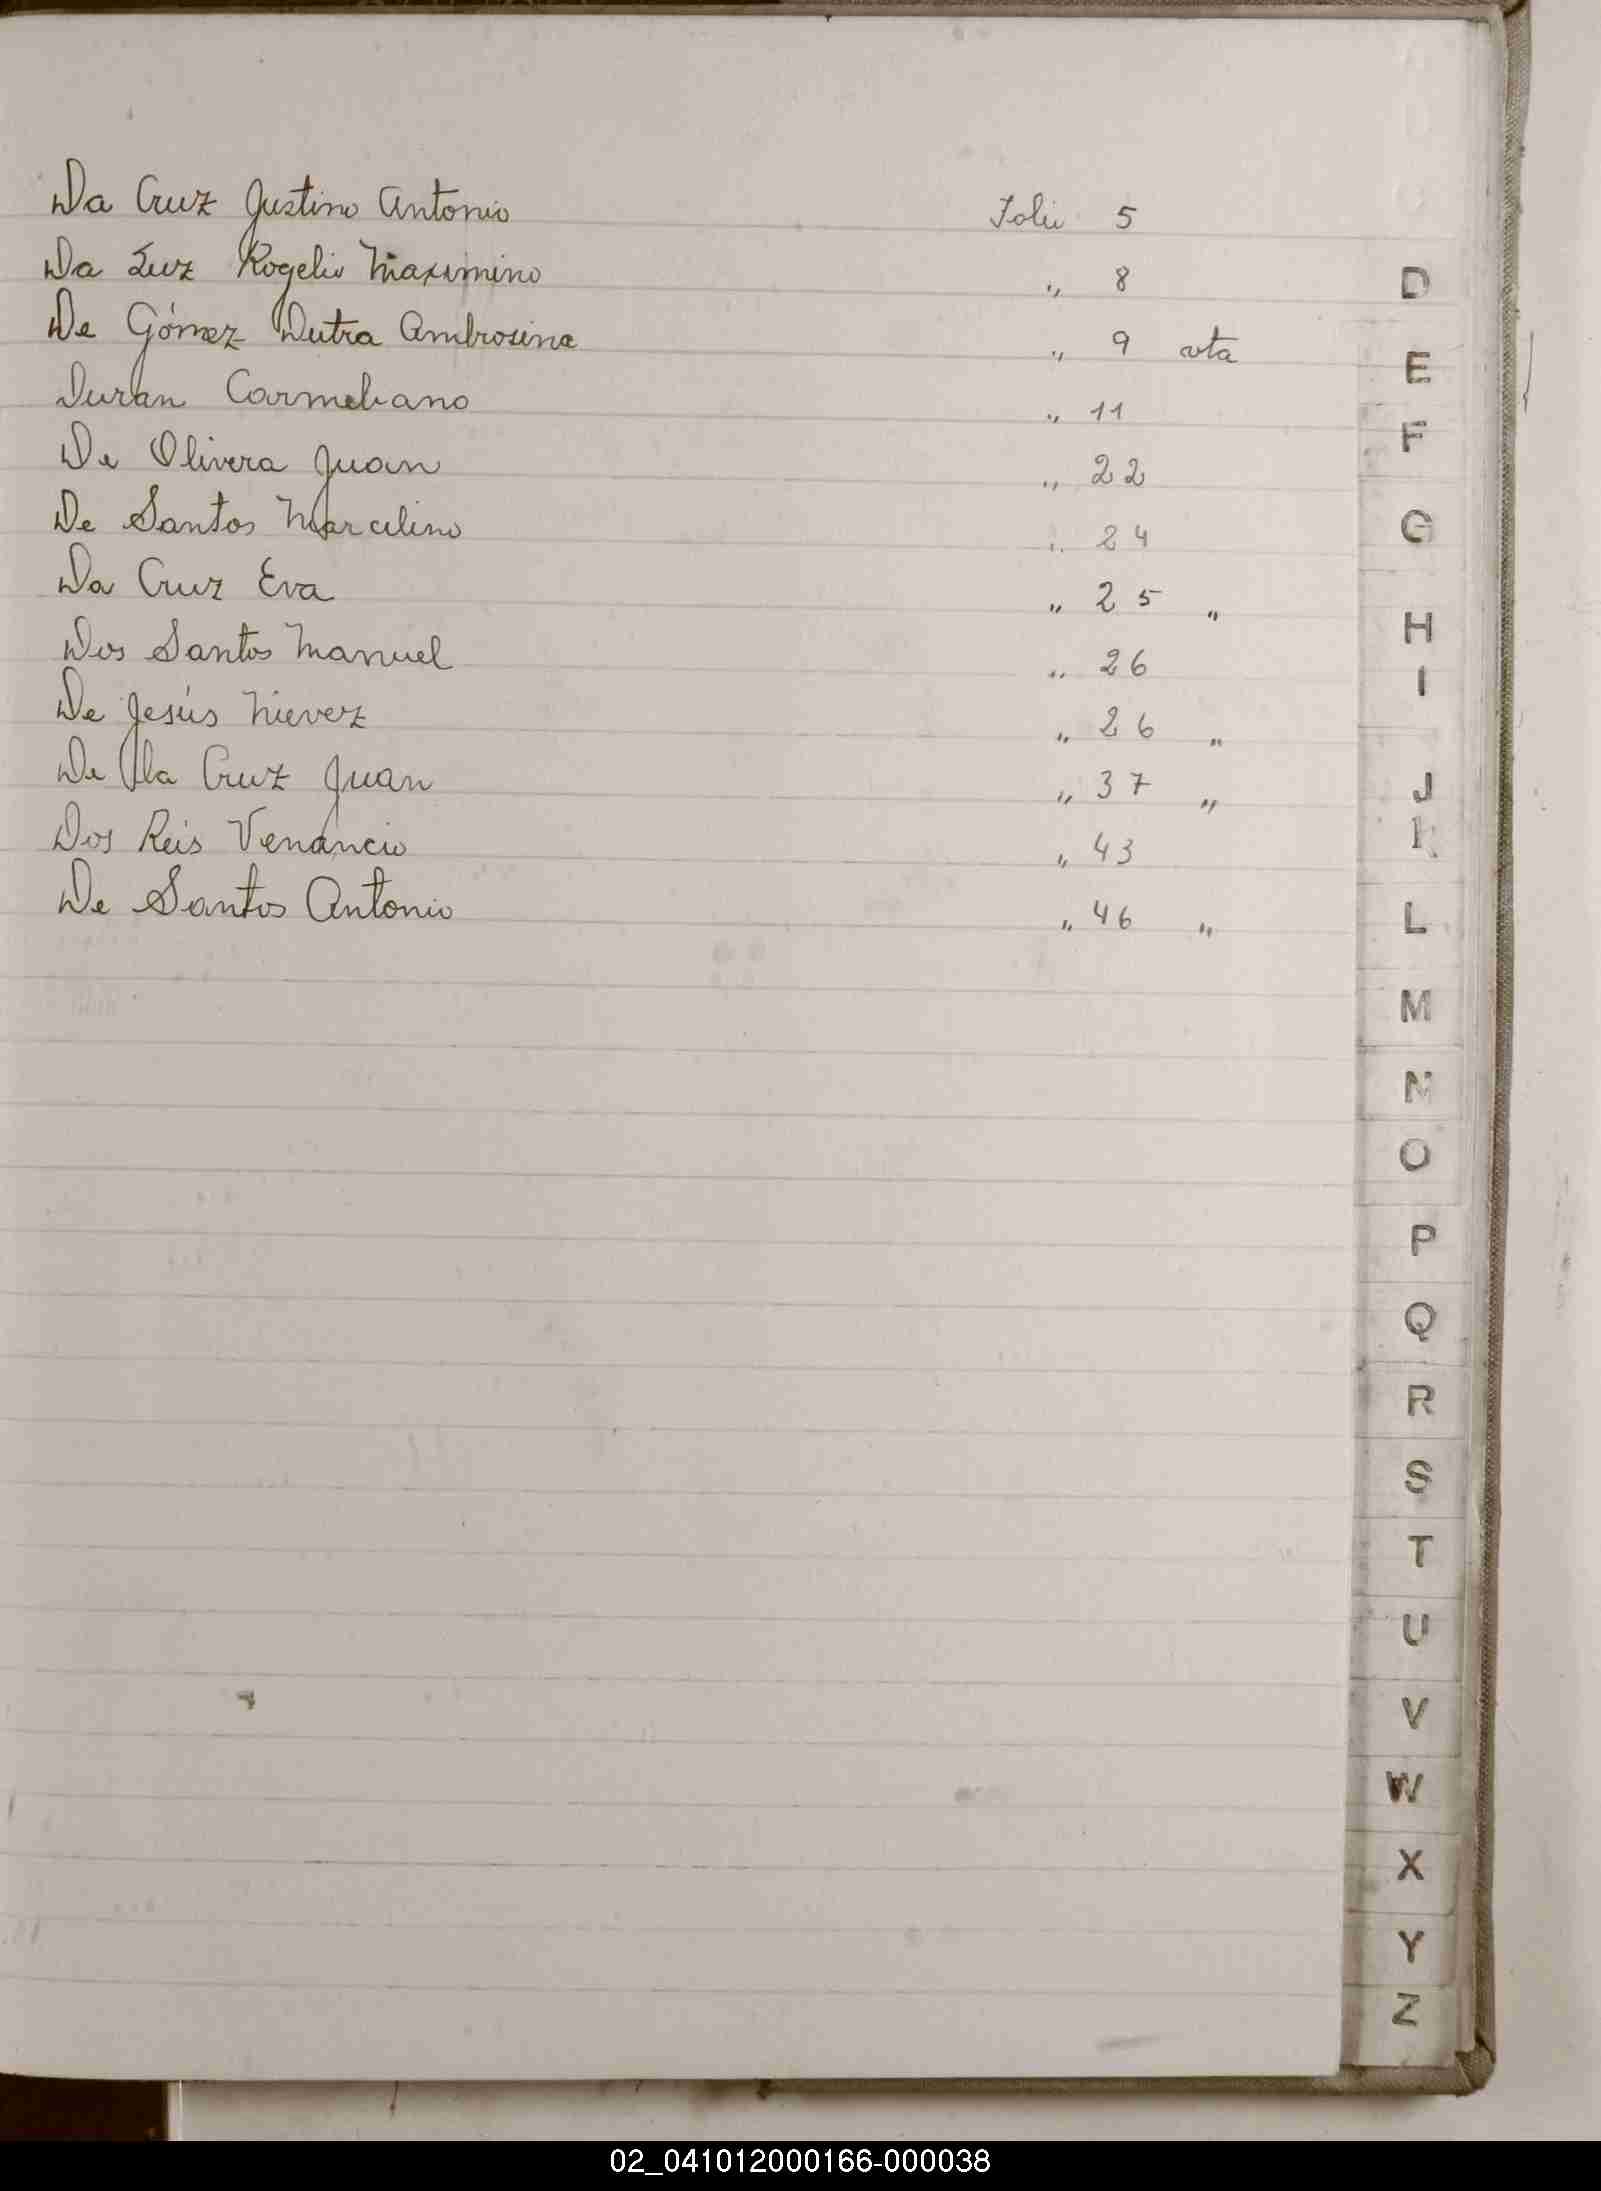 Da Cruz Justino Antonio Folio 5
Da Luz Rogelio Maximino " 8
De Gómez Dutra Ambrosina " 9 vta
Duran Carmeliano " 11
De Olivera Juan " 22
De Santos Marcelino " 24
Da Cruz Eva " 25 "
Dos Santos Manuel " 26
De Jesús Nievez " 26 "
De la Cruz Juan " 37 "
Dos Reis Venancio " 43
De Santos Antonio " 46 "
D
E
F
G
H
I
J
K
L
M
N
O
P
Q
R
S
T
U
V
W
X
Y
Z
02_041012000166-000038